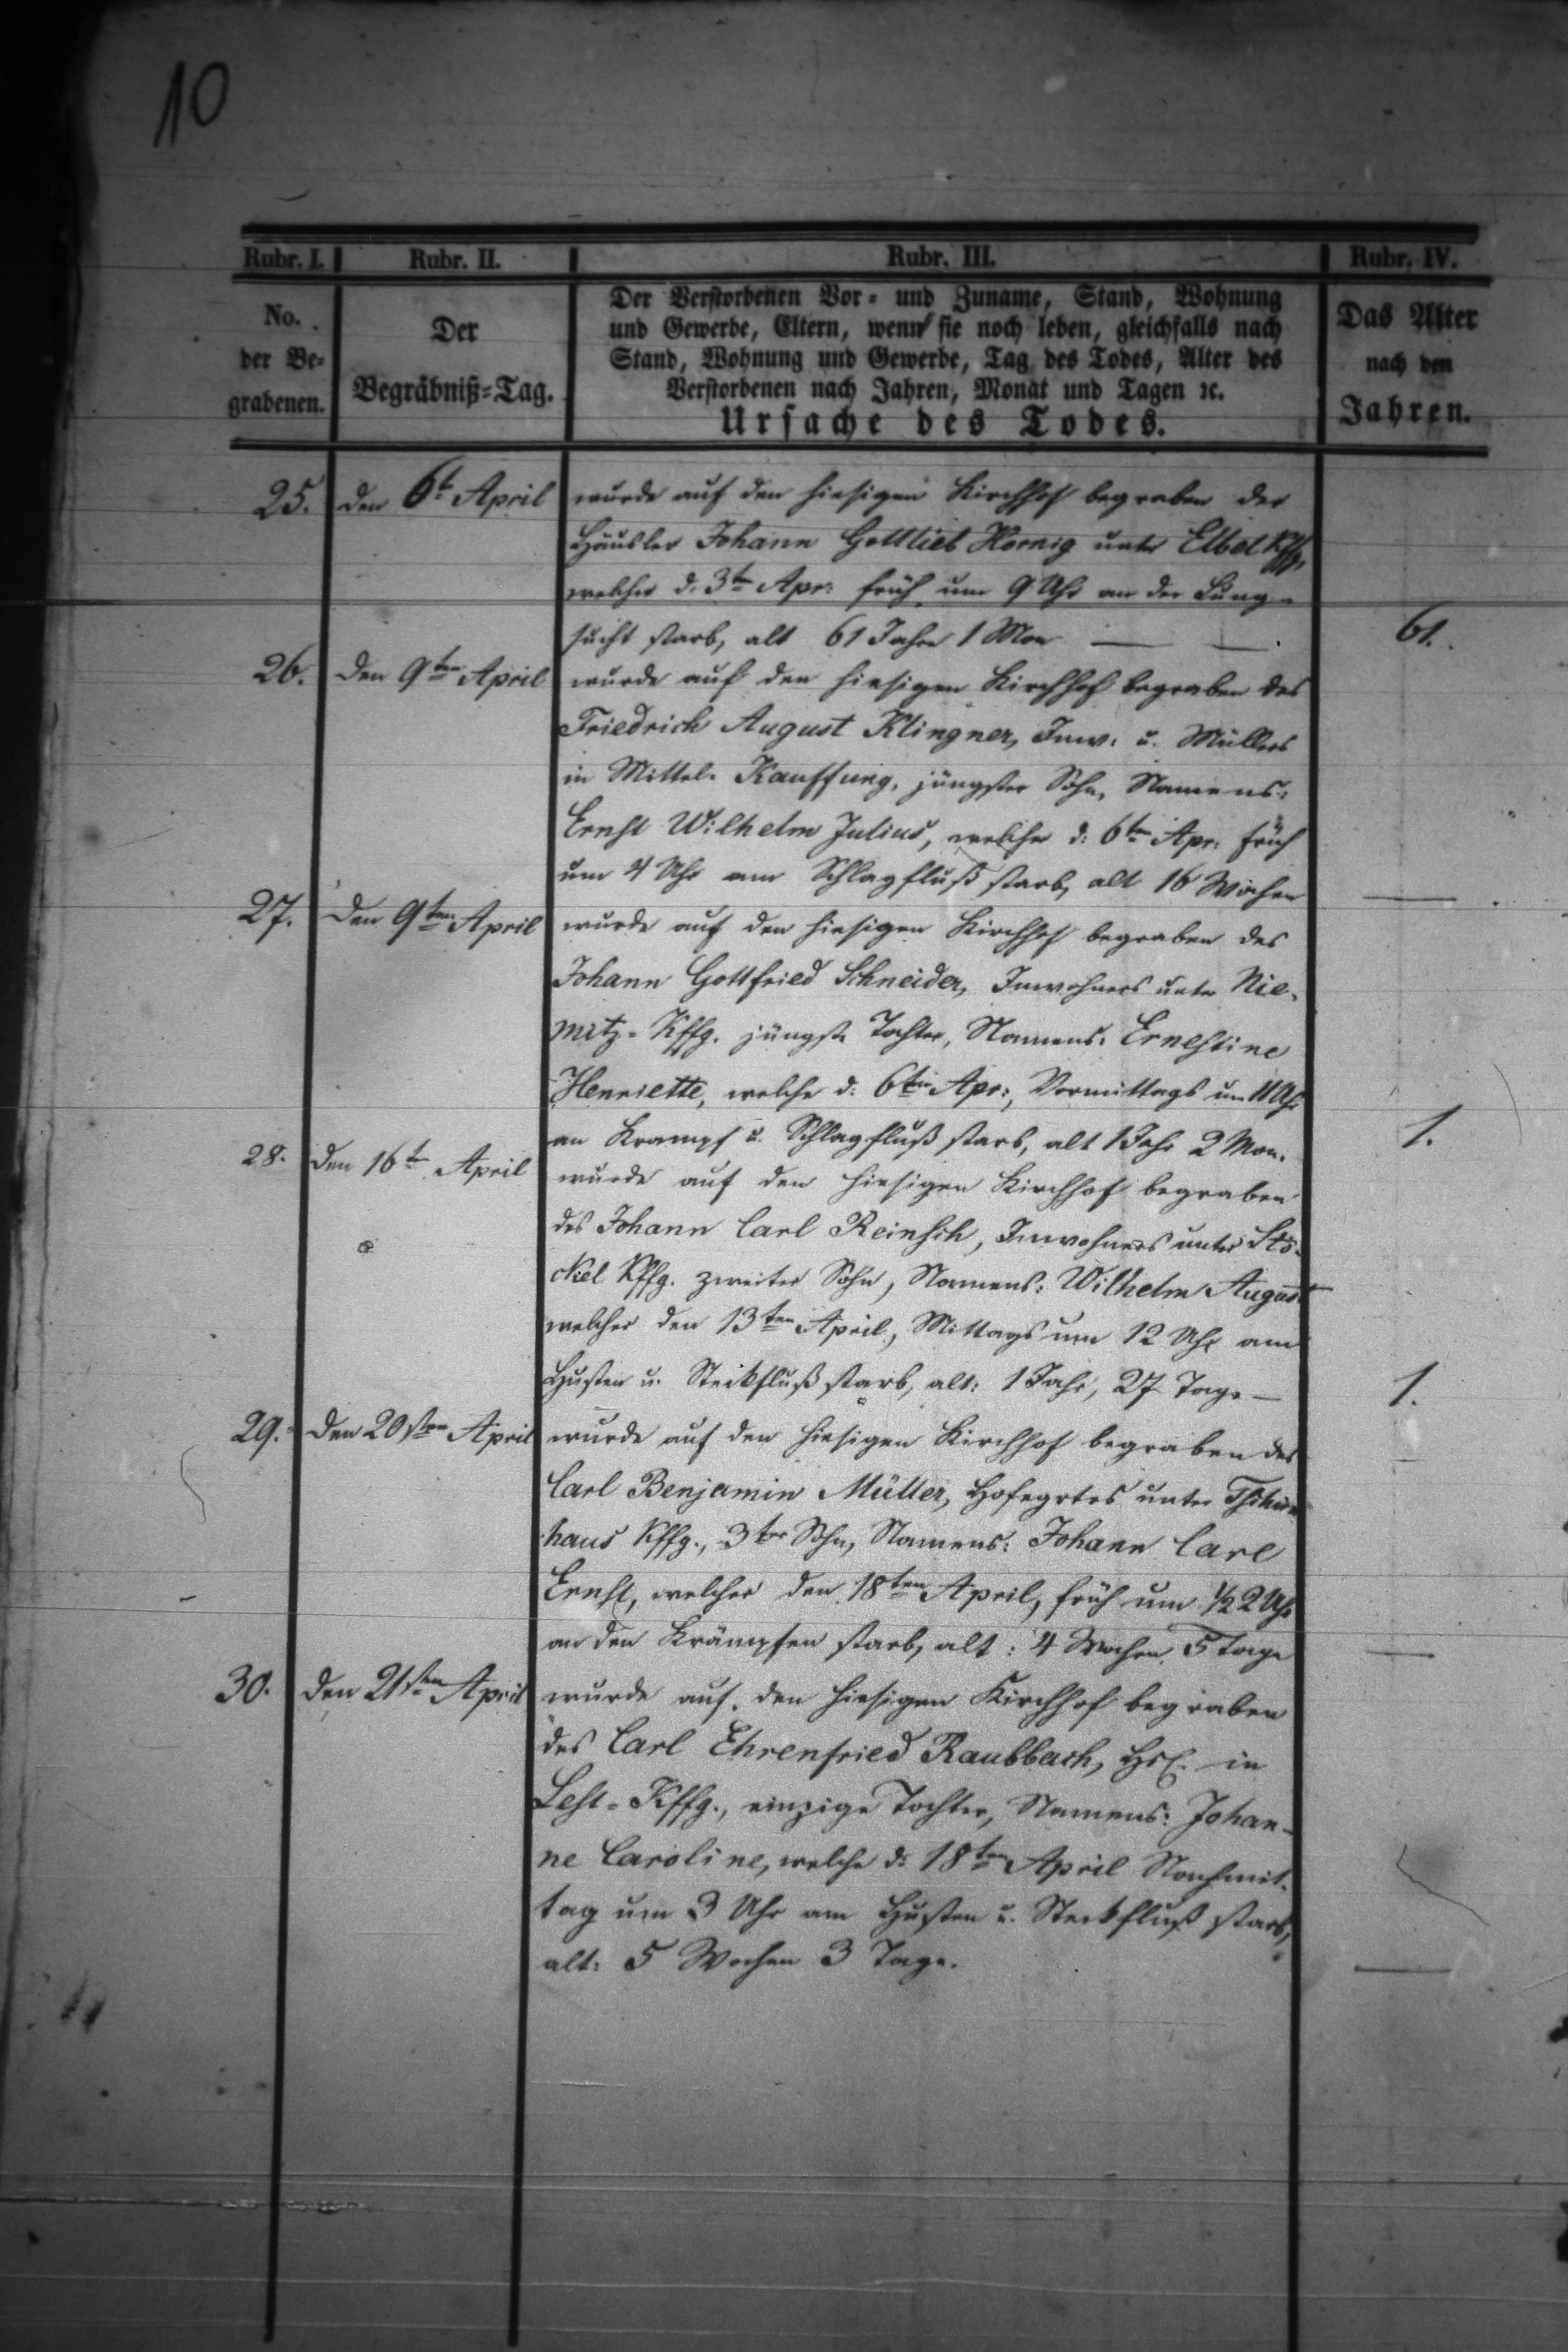 10
Rubr. I. Rubr. II. Rubr. III. Rubr. IV.
No.
der Be-
grabenen.
Der
Begräbniß-Tag.
Der Verstorbenen Vor- und Zuname, Stand, Wohnung
und Gewerbe, Eltern, wenn sie noch leben, gleichfalls nach
Stand, Wohnung und Gewerbe, Tag des Todes, Alter des
Verstorbenen nach Jahren, Monat und Tagen ꝛc.
Ursache des Todes.
Das Alter
nach den
Jahren.
25. den 6t April wurde auf den hiesigen Kirchhof begraben der
Häusler Johann Gottlieb Hornig unter Elbel Kffg,
welcher d. 3t Apr: früh um 9 Uhr an der Lung-
sucht starb, alt 61 Jahre 1 Mon — — 61.
26. den 9ten April wurde auf den hiesigen Kirchhof begraben des
Friedrich August Klingner, Inw: u. Müllers
in Mittel-Kauffung, jüngster Sohn, Namens:
Ernst Wilhelm Julius, welcher d: 6ten Apr: früh
um 4 Uhr am Schlagfluß starb, alt 16 Wochen —
27. den 9ten April wurde auf den hiesigen Kirchhof begraben des
Johann Gottfried Schneider, Inwohners unter Nie-
mitz-Kffg. jüngste Tochter, Namens: Ernestine
Henriette, welche d: 6ten Apr:, Vormittags um 11 Uhr
an Krampf u. Schlagfluß starb, alt 1 Jahr 2 Mon. 1.
28. den 16t April wurde auf den hiesigen Kirchhof begraben
des Johann Carl Reinsch, Inwohners unter Stö-
ckel Kffg. zweiter Sohn, Namens: Wilhelm August
welcher den 13ten April, Mittags um 12 Uhr am
Husten u. Steckfluß starb, alt: 1 Jahr, 27 Tage — 1.
29. den 20sten April wurde auf den hiesigen Kirchhof begraben des
Carl Benjamin Müller, unter Tschirn
haus Kffg., 3ter Sohn, Namens: Johann Carl
Ernst, welcher den 18ten April, früh um ½ 2 Uhr
an den Krämpfen starb, alt: 4 Wochen 5 Tage —
30. den 21sten April wurde auf den hiesigen Kirchhof begraben
des Carl Ehrenfried Raubbach, in
Lest-Kffg., einzige Tochter, Namens: Johan-
ne Caroline, welche d: 18ten April Nachmit-
tag um 3 Uhr am Husten u. Steckfluß starb,
alt: 5 Wochen 3 Tage. —